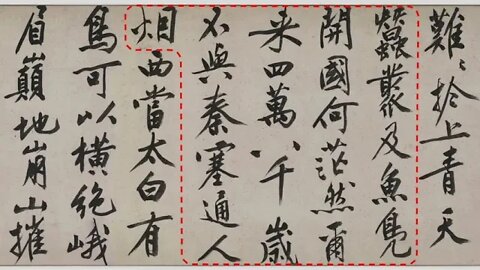 難〻扵上青天
蠶叢及魚鳧
開國何茫然爾
来四萬八千歲
不與秦塞通人
烟西當太白有
鳥可以橫絶峨
眉巔地崩山摧